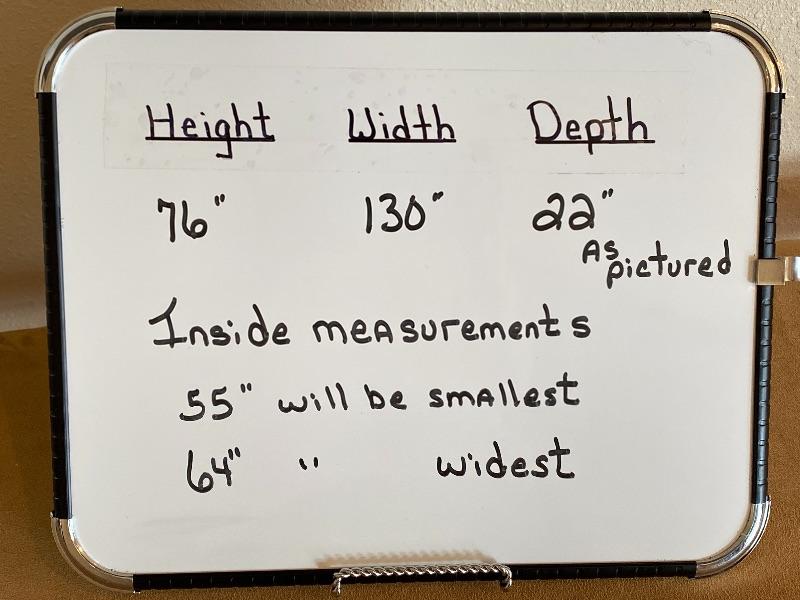 Height Width Depth
76" 130" 22"
As pictured
Inside measurements
55" will be smallest
64" " widest